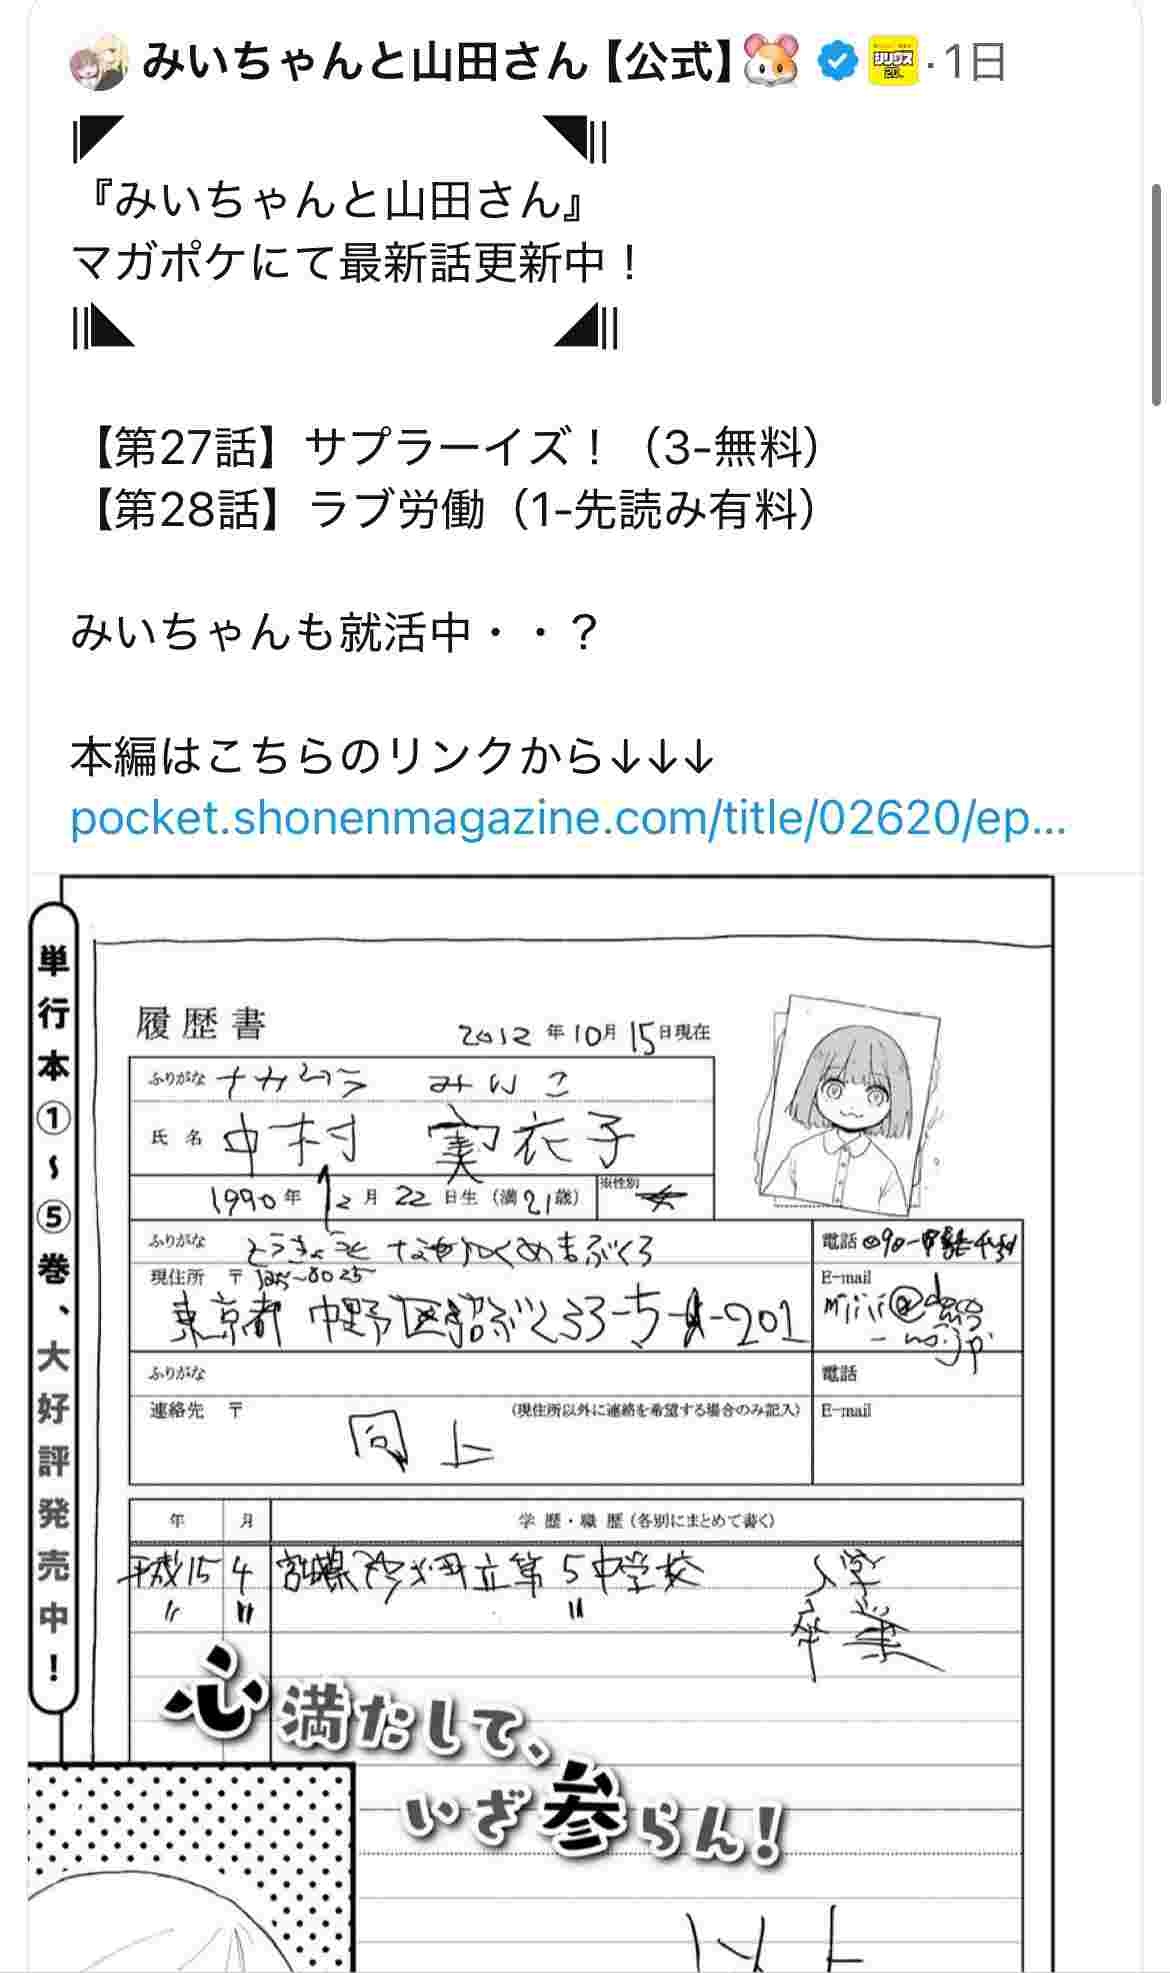 みいちゃんと山田さん【公式】🐹 シリウス 20th · 1日
『みいちゃんと山田さん』
マガポケにて最新話更新中！
【第27話】サプラーイズ！（3-無料）
【第28話】ラブ労働（1-先読み有料）
みいちゃんも就活中・・？
本編はこちらのリンクから↓↓↓
pocket.shonenmagazine.com/title/02620/ep...
単行本①～⑤巻、大好評発売中！
履歴書
2012年10月15日現在
ふりがな ナカムラ みいこ
氏名 中村 実衣子
1990年12月22日生（満21歳）
※性別 女
ふりがな とうきょうと なかのくぬまぶくろ
現住所 〒165-0025
東京都 中野区沼ぶくろ3-5-4-201
電話 090-
E-mail
ふりがな
電話
連絡先 〒
（現住所以外に連絡を希望する場合のみ記入）
E-mail
同上
年 月 学歴・職歴（各別にまとめて書く）
平成15 4 宮城県 町立第5中学校 入学
〃 〃 〃 卒業
心満たして、
いざ参らん！
以上